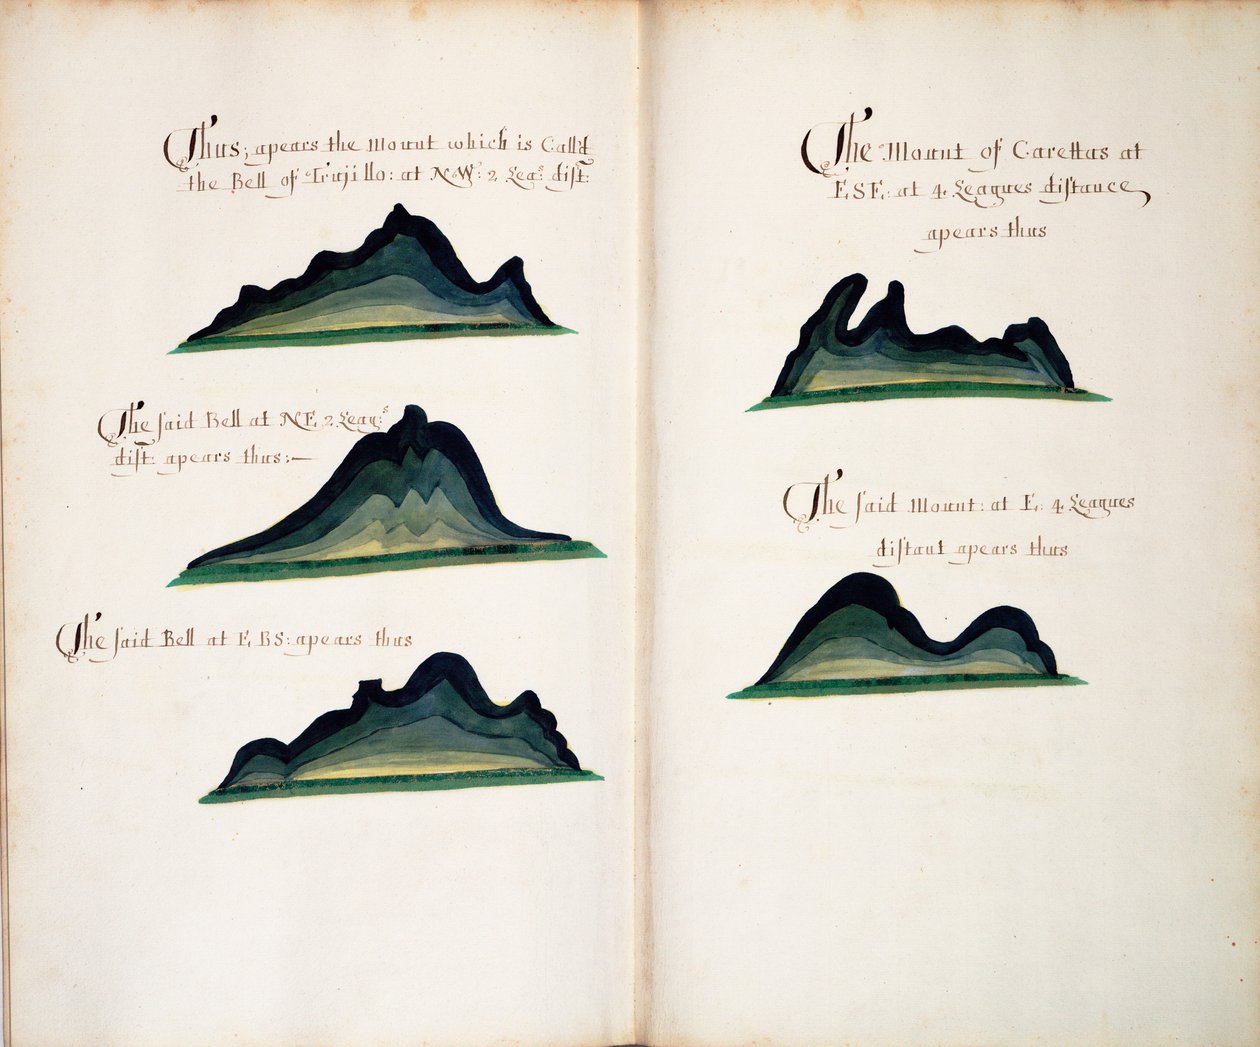 Thus; apears the Mount which is Call'd
the Bell of Trujillo: at NW: 2 Leas: dist:
The said Bell at NE, 2 Leagu:s
dist: apears thus:—
The said Bell at E, BS: apears thus
The Mount of Carettas at
E,SE,: at 4, Leagues distance,
apears thus
The said Mount: at E,: 4, Leagues
distant apears thus